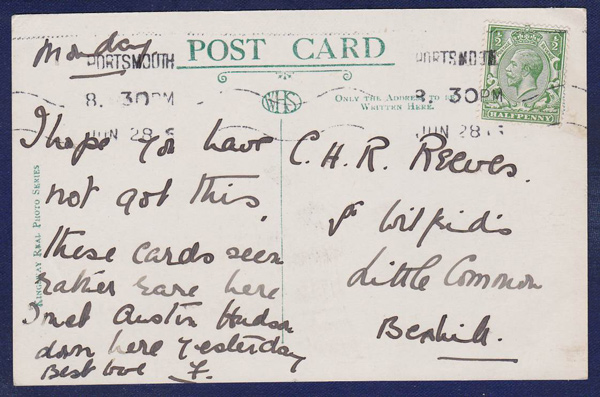 Monday
POST CARD
PORTSMOUTH
8. 30 PM
JUN 28
PORTSMOUTH
8. 30 PM
JUN 28
HALFPENNY
WHS
ONLY THE ADDRESS TO BE
WRITTEN HERE.
KINGSWAY REAL PHOTO SERIES
I hope you have
not got this,
these cards seem
rather rare here
I met Austin Hudson
down here yesterday
Best love F.
C. H. R. Reeves.
St Wilfrid's
Little Common
Bexhill.